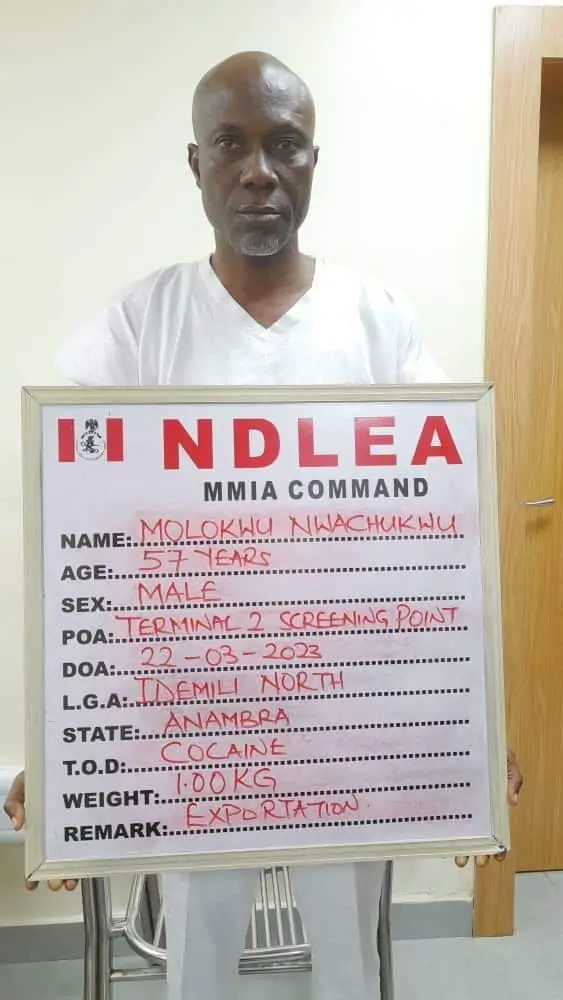 NDLEA
MMIA COMMAND
NAME: MOLOKWU NWACHUKWU
AGE: 57 YEARS
SEX: MALE
POA: TERMINAL 2 SCREENING POINT
DOA: 22-03-2023
L.G.A: IDEMILI NORTH
STATE: ANAMBRA
T.O.D: COCAINE
WEIGHT: 1.00KG
REMARK: EXPORTATION.